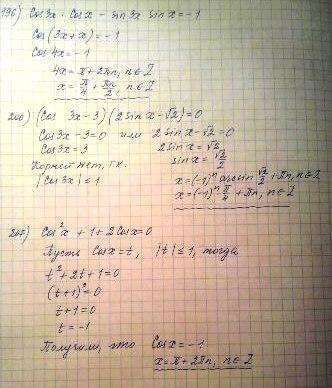 196) Cos3x · Cosx - Sin3x Sinx = -1
Cos(3x+x) = -1
Cos4x = -1
4x = π + 2πn, n∈Z
x = π/4 + πn/2, n∈Z
200) (Cos 3x-3)(2Sinx-√2)=0
Cos3x-3=0 или 2Sinx-√2=0
Cos3x=3 2Sinx=√2
Корней нет, т.к. Sinx=√2/2
|Cos3x|≤1 x=(-1)ⁿ arcsin √2/2 + πn, n∈Z
x=(-1)ⁿ π/4 + πn, n∈Z
207) Cos²x + 1 + 2Cosx = 0
Пусть Cosx=t, |t|≤1, тогда
t²+2t+1=0
(t+1)²=0
t+1=0
t=-1
Получим, что Cosx=-1
x=π+2πn, n∈Z